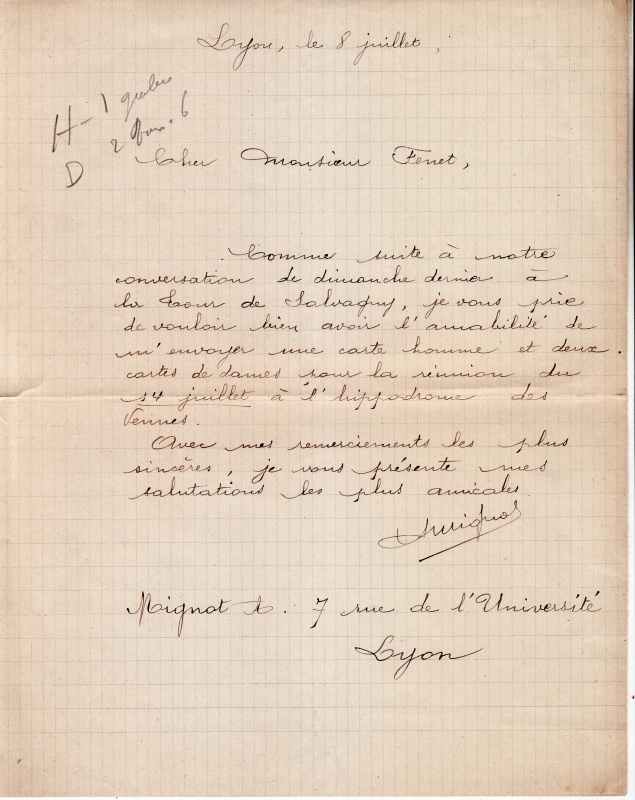 Lyon, le 8 juillet,
H - 1
D 2
Cher Monsieur Fenet,
Comme suite à notre
conversation de dimanche dernier à
la Tour de Salvagny, je vous prie
de vouloir bien avoir l'amabilité de
m'envoyer une carte homme et deux
cartes de dames pour la réunion du
14 juillet à l'hippodrome des
Vennes.
Avec mes remerciements les plus
sincères, je vous présente mes
salutations les plus amicales.
AMignot
Mignot A. 7 rue de l'Université
Lyon